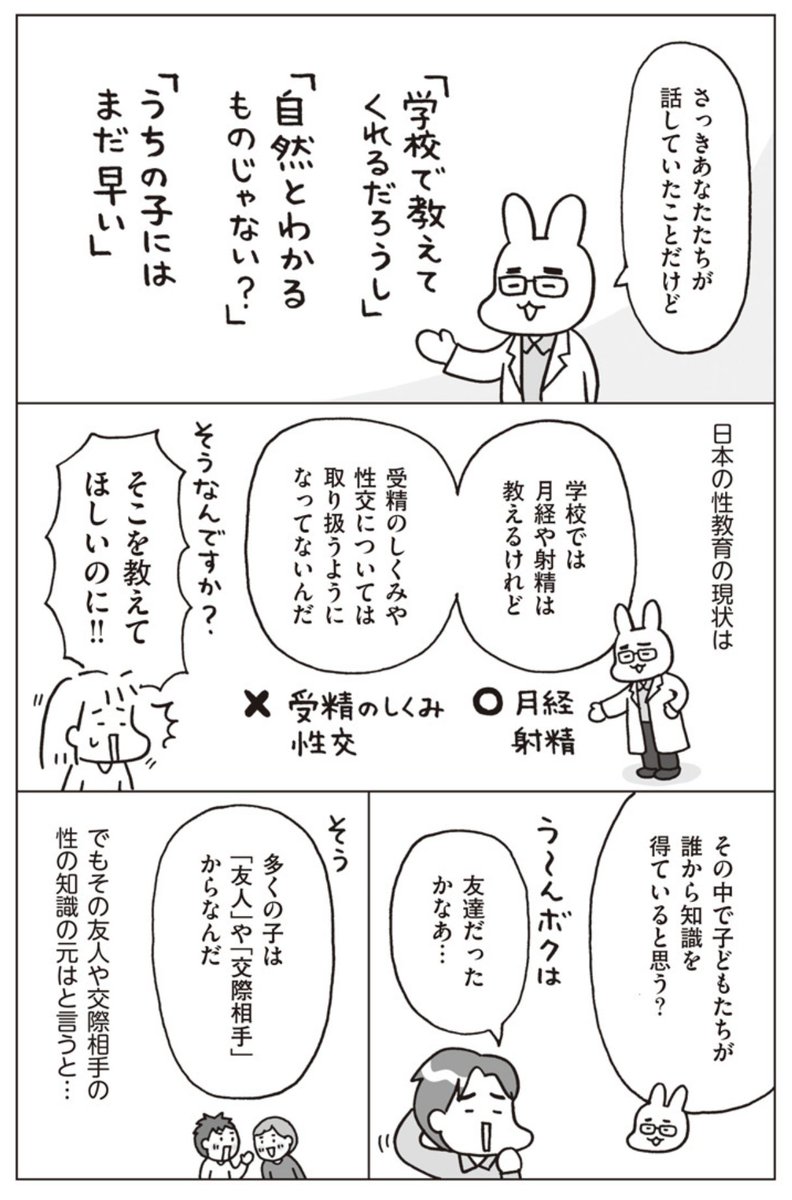 さっきあなたたちが
話していたことだけど
「学校で教えて
くれるだろうし」
「自然とわかる
ものじゃない？」
「うちの子には
まだ早い」
日本の性教育の現状は
学校では
月経や射精は
教えるけれど
受精のしくみや
性交については
取り扱うように
なってないんだ
○月経
射精
×受精のしくみ
性交
そうなんですか？
そこを教えて
ほしいのに!!
その中で子どもたちが
誰から知識を
得ていると思う？
う〜んボクは
友達だった
かなあ…
そう
多くの子は
「友人」や「交際相手」
からなんだ
でもその友人や交際相手の
性の知識の元はと言うと…